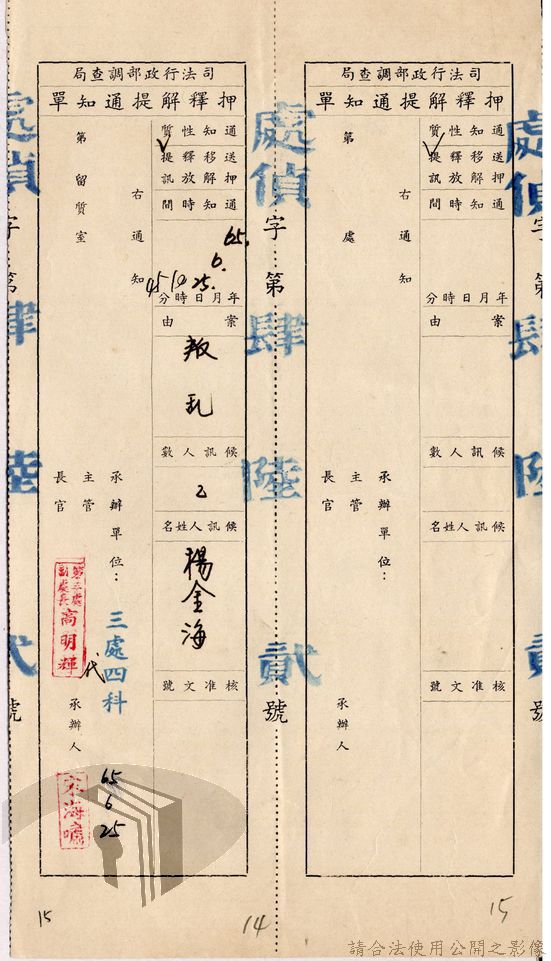 處偵字第肆陸貳號
司法行政部調查局
押釋解提通知單
通知性質
送押
移解
釋放
提訊
✓
通知時間
年月日時分
案由
候訊人數
候訊人姓名
核准文號
右通知
第 處
承辦單位：
主管
長官
承辦人
15
處偵字第肆陸貳號
14
司法行政部調查局
押釋解提通知單
通知性質
送押
移解
釋放
提訊
✓
通知時間
65.6.25.10 45
年月日時分
案由
叛乱
候訊人數
乙
候訊人姓名
楊金海
核准文號
右通知
第留質室
承辦單位：
三處四科
主管
長官
第三處
副處長
高明輝
代
承辦人
65
6
25
15
處偵字第肆陸貳號
請合法使用公開之影像